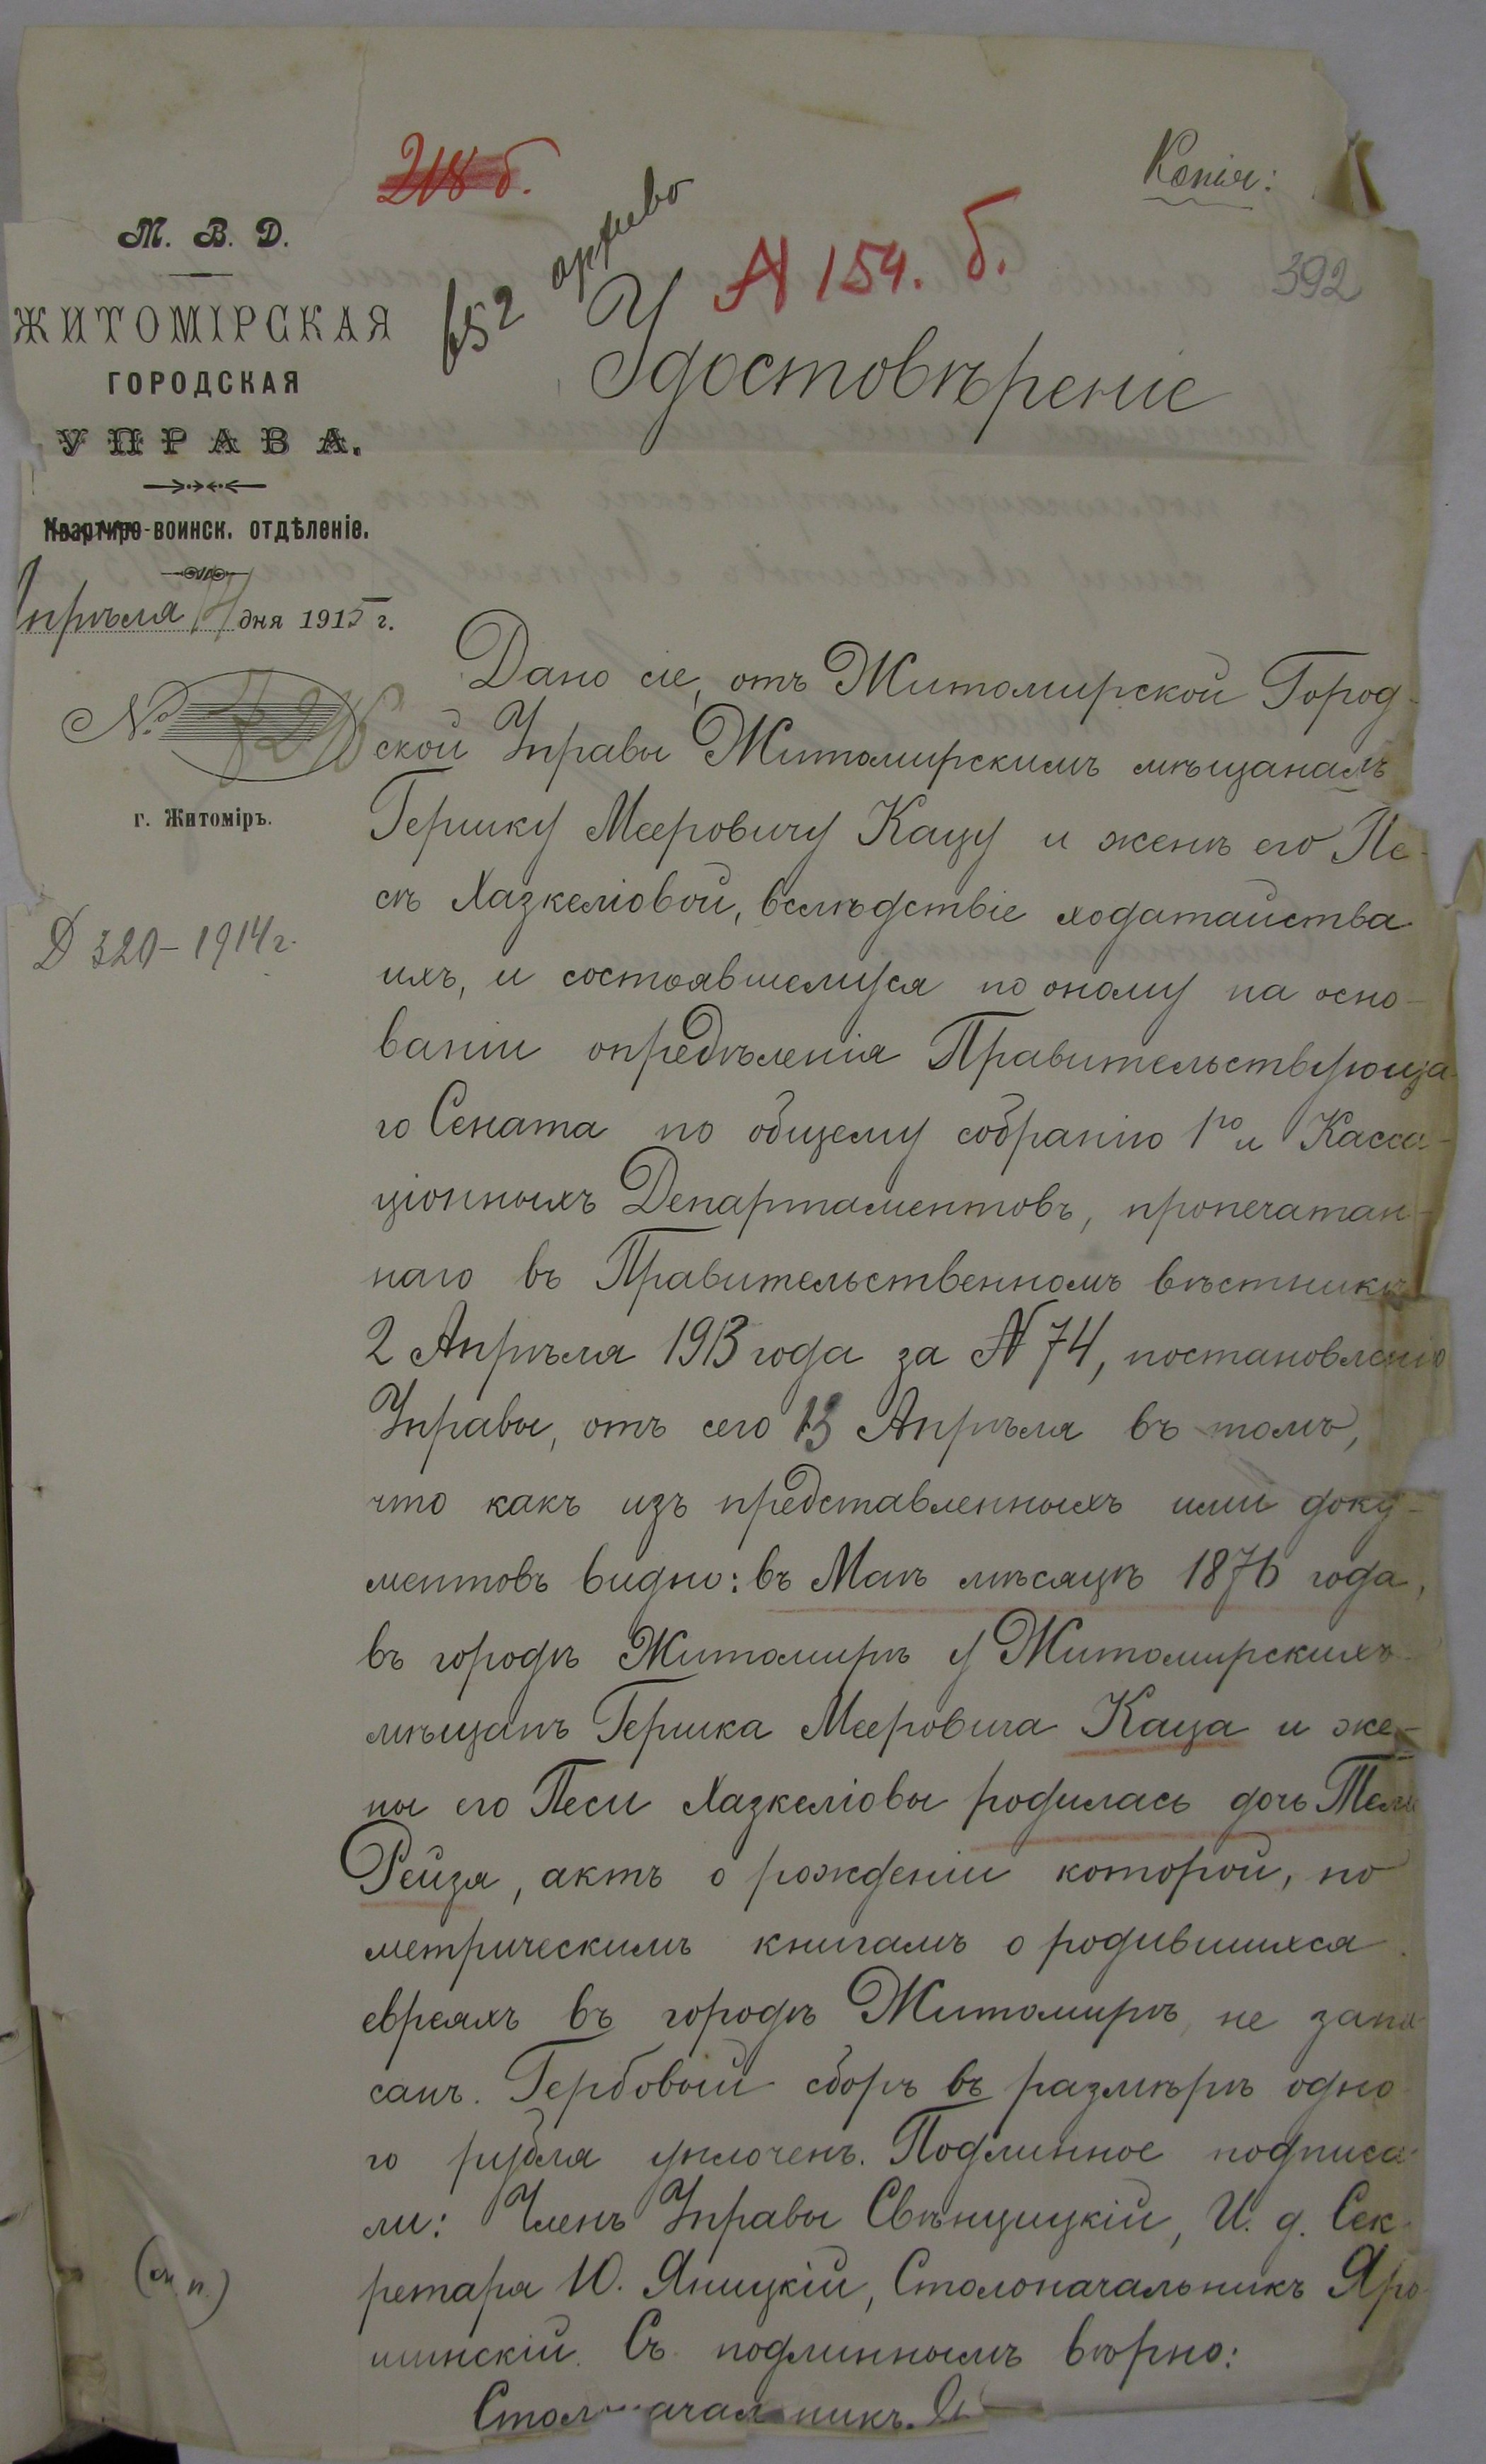 218 б.
Копія:
архиво
652
№ 154. б.
392
М. В. Д.
ЖИТОМІРСКАЯ
ГОРОДСКАЯ
УПРАВА.
Квартиро-воинск. отдѣленіе.
Апрѣля дня 1915 г.
№
г. Житоміръ.
Д 320-1914 г.
Удостовѣреніе
Дано сіе, отъ Житомирской Город-
ской Управы Житомирскимъ мѣщанамъ
Гершку Мееровичу Кацу и женѣ его Пе-
сѣ Хазкеліовой, вслѣдствіе ходатайства
ихъ, и состоявшемуся по оному на осно-
ваніи опредѣленія Правительствующа-
го Сената по общему собранію 1го и Касса-
ціонныхъ Департаментовъ, пропечатан-
наго въ Правительственномъ вѣстникѣ
2 Апрѣля 1913 года за № 74, постановленію
Управы, отъ сего 13 Апрѣля въ томъ,
что какъ изъ представленныхъ ими доку-
ментовъ видно: въ Маѣ мѣсяцѣ 1876 года,
въ городѣ Житомирѣ у Житомирскихъ
мѣщанъ Гершка Мееровича Каца и же-
ны его Песи Хазкеліовы родилась дочь
Рейзя, актъ о рожденіи которой, по
метрическимъ книгамъ о родившихся
евреяхъ въ городѣ Житомирѣ, не запи-
санъ. Гербовый сборъ въ размѣрѣ одно-
го рубля уплоченъ. Подлинное подписа-
ли: Членъ Управы Свѣнцицкій, И. д. Сек-
ретаря Ю. Яницкій, Столоначальникъ Яро-
шинскій. Съ подлиннымъ вѣрно:
Столоначальникъ.
(см. п.)